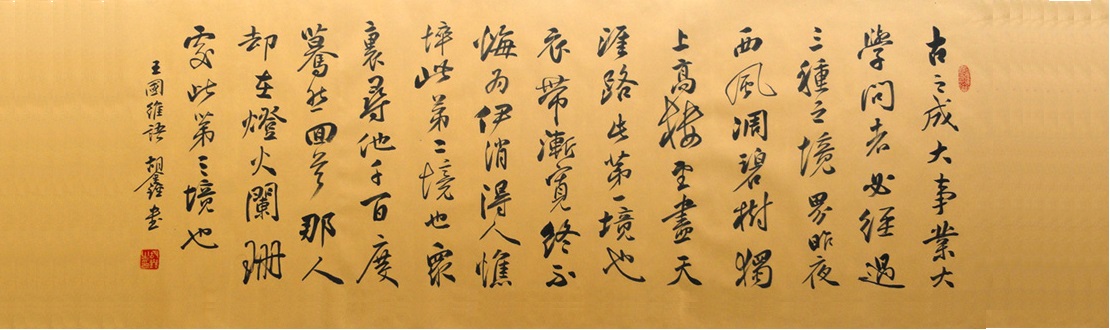 古之成大事業大
學問者必經過
三種之境界昨夜
西風凋碧樹獨
上高樓望盡天
涯路此第一境也
衣帶漸寬終不
悔为伊消得人憔
悴此第二境也眾
裏尋他千百度
驀然回首那人
却在燈火闌珊
處此第三境也
王國維語 胡鑫書